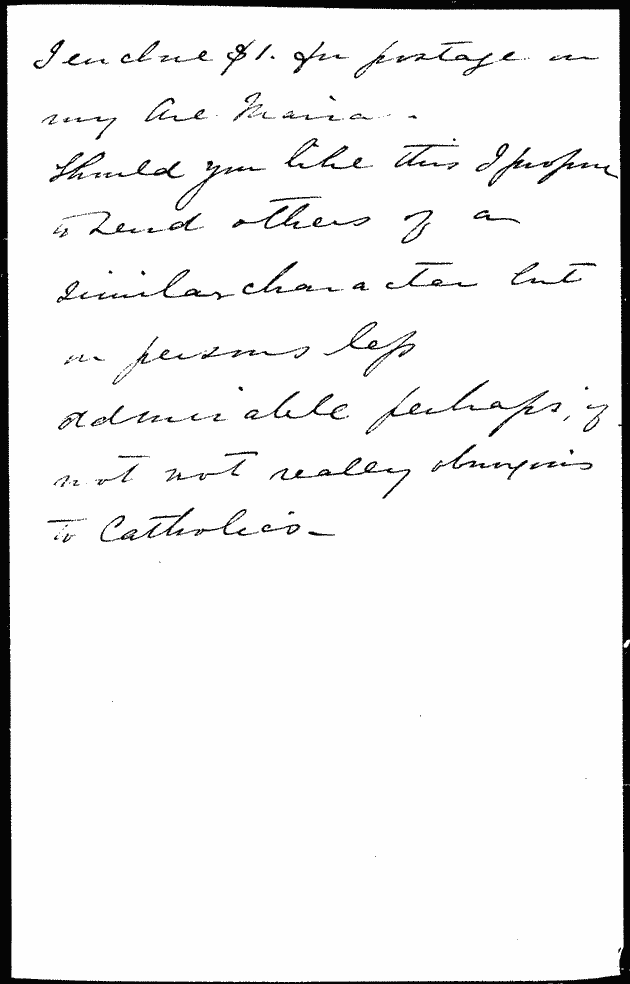 I enclose $1. for postage on
my Ave Maria.
Should you like this I propose
to send others of a
similar character but
on persons less
admirable perhaps, if
not not really obnoxious
to Catholics—